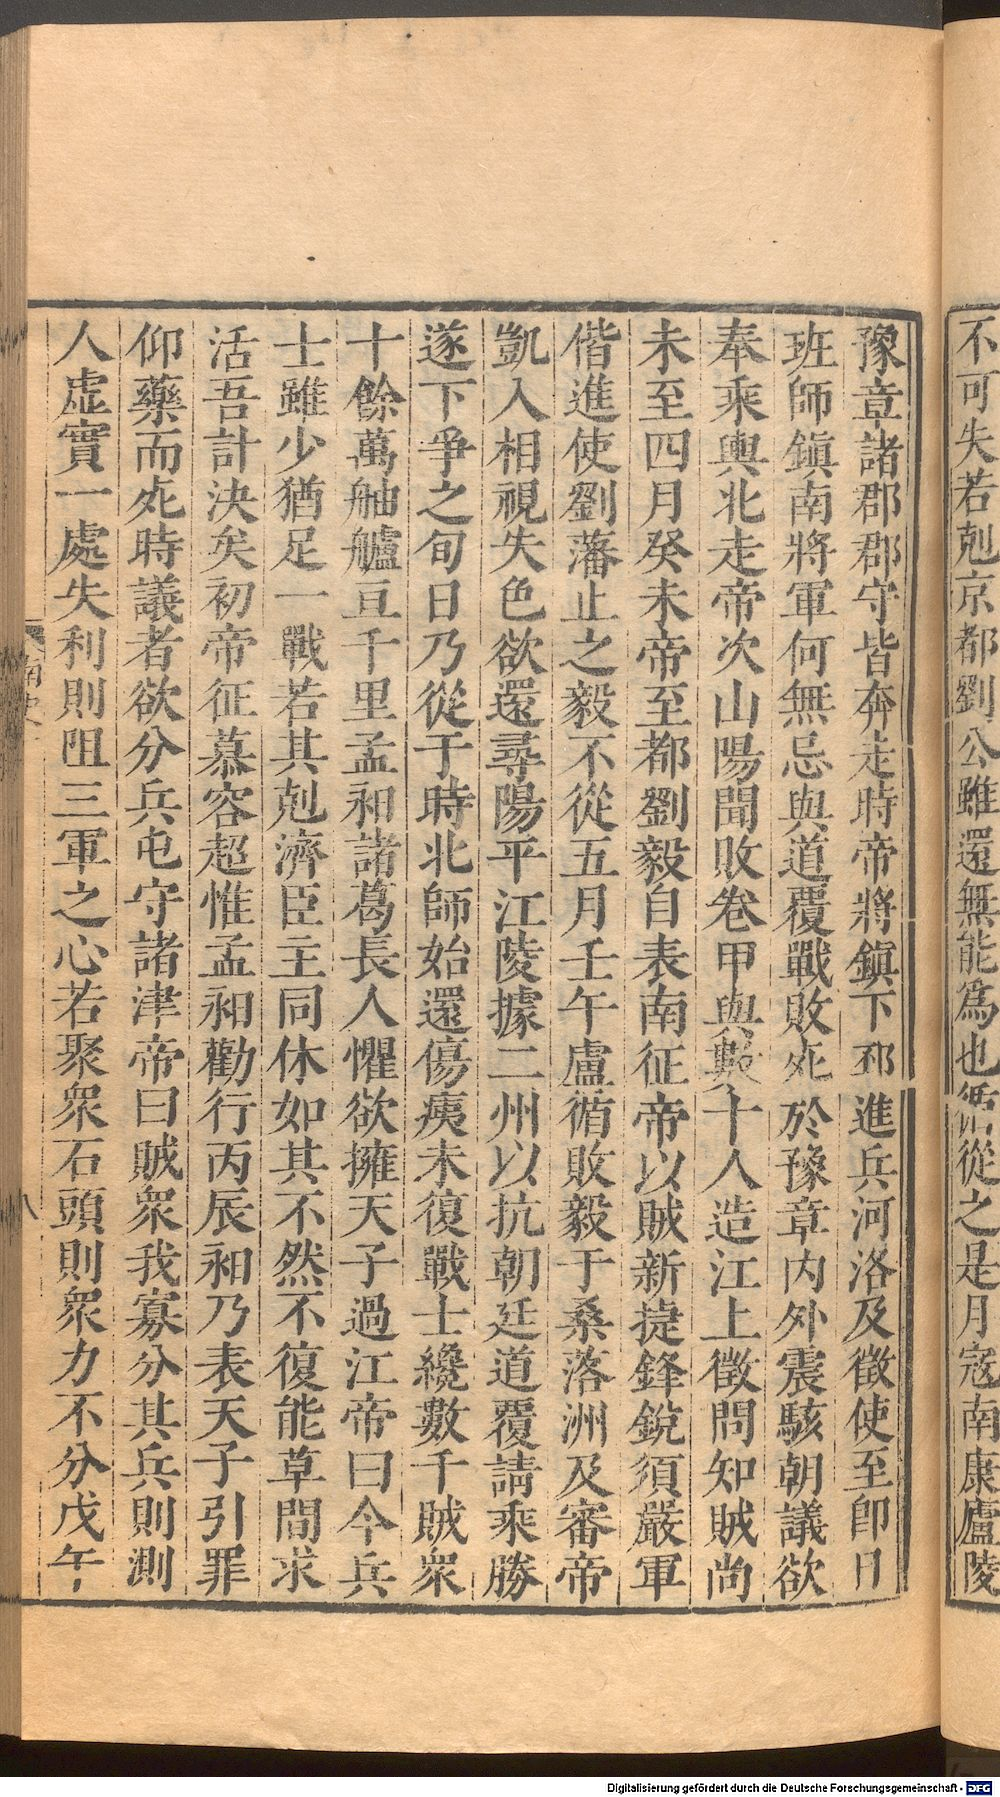 不可失若剋京都劉公雖還無能爲也循從之是月寇南康廬陵
豫章諸郡郡守皆奔走時帝將鎮下邳進兵河洛及徵使至卽日
班師鎮南將軍何無忌與道覆戰敗死於豫章內外震駭朝議欲
奉乘輿北走帝次山陽聞敗卷甲與數十人造江上徵問知賊尚
未至四月癸未帝至都劉毅自表南征帝以賊新捷鋒銳須嚴軍
偕進使劉藩止之毅不從五月壬午盧循敗毅于桑落洲及審帝
凱入相視失色欲還尋陽平江陵據二州以抗朝廷道覆請乘勝
遂下爭之旬日乃從于時北師始還傷痍未復戰士纔數千賊衆
十餘萬舳艫亘千里孟昶諸葛長人懼欲擁天子過江帝曰今兵
士雖少猶足一戰若其剋濟臣主同休如其不然不復能草間求
活吾計決矣初帝征慕容超惟孟昶勸行丙辰昶乃表天子引罪
仰藥而死時議者欲分兵屯守諸津帝曰賊衆我寡分其兵則測
人虛實一處失利則阻三軍之心若聚衆石頭則衆力不分戊午
八
Digitalisierung gefördert durch die Deutsche Forschungsgemeinschaft - DFG